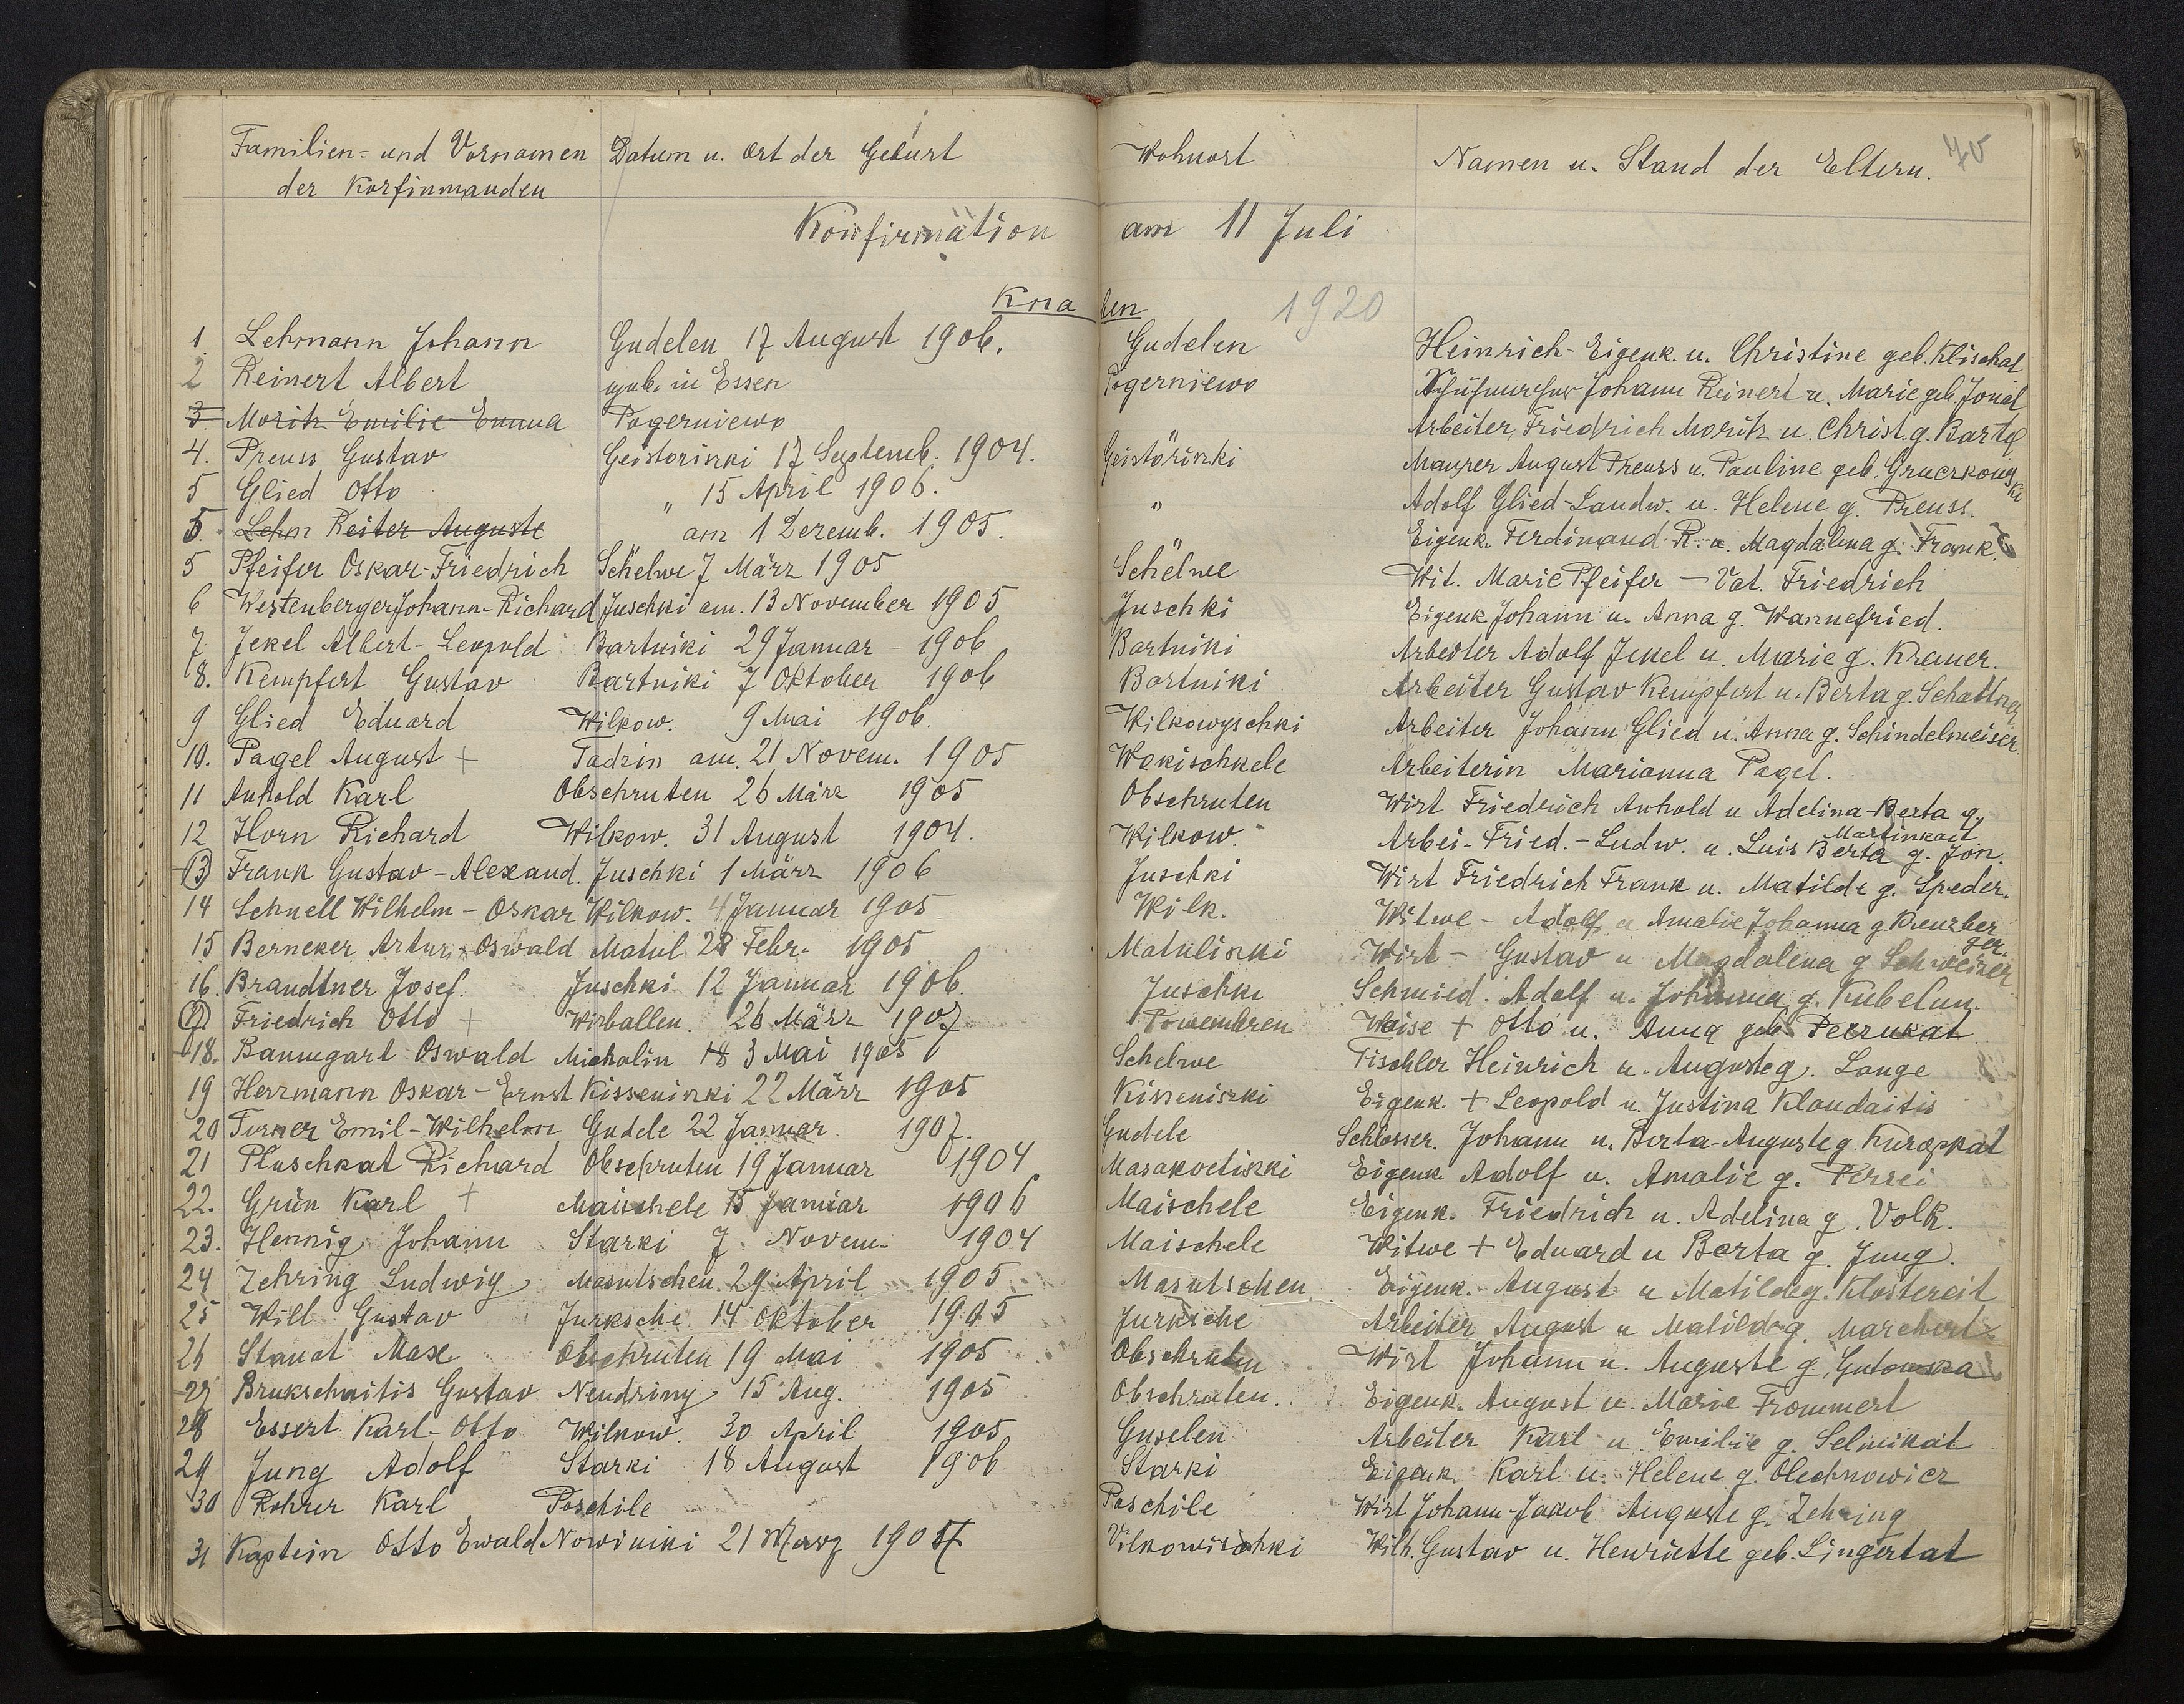 Familien- und Vornamen Datum u. Ort der Geburt Wohnort Namen u. Stand der Eltern. 70
der Korfinmanden
Konfirmation am 11 Juli
Knaben 1920
1. Lehmann Johann Gudelen 17 August 1906. Gudelen Heinrich-Eigenk. u. Christine geb. Klischat
2 Reinert Albert geb. in Essen Pogerniewo Johann Reinert u. Marie geb. Jonat
3. Moritz Emilie Emma Pogerniewo Arbeiter Friedrich Moritz u. Christ. g. Bartel
4. Preuss Gustav Geistorizki 17 Septemb. 1904. Geistörizki Maurer August Preuss u. Pauline geb. Gruczkowski
5 Glied Otto " 15 April 1906. " Adolf Glied-Landw. u. Helene g. Preuss.
5. Lehm Reiter Auguste am 1 Dezemb. 1905. Eigenk. Ferdinand R. u. Magdalena g. Frank.
5 Pfeifer Oskar-Friedrich Schelwe 7 März 1905 Schelwe Wit. Marie Pfeifer - Vat. Friedrich
6 Westenberger Johann-Richard Juschki am. 13 November 1905 Juschki Eigenk. Johann u. Anna g. Wannefried.
7. Jekel Albert-Leopold Bartniki 29 Januar 1906 Bartniki Arbeiter Adolf Jekel u. Marie g. Kremer.
8. Kempfert Gustav Bartniki 7 Oktober 1906 Bartniki Arbeiter Gustav Kempfert u. Berta g. Schattner
9 Glied Eduard Wilkow. 9 Mai 1906. Wilkowyschki Arbeiter Johann Glied u. Anna g. Schindelmeiser.
10. Pagel August + Tadzin am. 21 Novem. 1905 Wokischkele Arbeiterin Marianna Pagel.
11 Anhold Karl Obschruten 26 März 1905 Obschruten Wirt Friedrich Anhold u Adelina-Berta g. Martinkait
12 Horn Richard Wilkow. 31 August 1904. Wilkow. Arbei-Fried.-Ludw. u. Luis Berta g. Jon.
13 Frank Gustav-Alexand. Juschki 1 März 1906 Juschki Wirt Friedrich Frank u. Matilde g. Speder.
14 Schnell Wilhelm-Oskar Wilkow. 4 Januar 1905 Wilk. Witwe - Adolf u Amalie Johanna g Kreuzberger.
15 Berneker Artur-Oswald Matul 28 Febr. 1905 Matulizki Wirt - Gustav u Magdalena g Schweizer
16. Brandtner Josef. Juschki 12 Januar 1906. Juschki Schmied. Adolf u. Johanna g. Kubelun.
17 Friedrich Otto + Wirballen. 26 März 1907. Powembren Waise + Otto u. Anna geb Peczukat
18. Baumgart Oswald Micholin 18 3 Mai 1905 Schelwe Tischler Heinrich u. Auguste g. Lange
19 Herrmann Oskar-Ernst Kisseniszki 22 März 1905 Kisseniszki Eigenk. + Leopold u. Justina Klaudaitis
20 Turner Emil-Wilhelm Gudele 22 Januar 1907. Gudele Schlosser. Johann u. Berta-Auguste g. Kuropkat
21 Pluschkat Richard Obschruten 19 Januar 1904 Masakoetizki Eigenk. Adolf u. Amalie g. Perrei
22. Grün Karl + Maischele 15 Januar 1906 Maischele Eigenk. Friedrich u. Adelina g. Volk.
23. Hennig Johann Starki 7 Novem. 1904 Maischele Witwe + Eduard u Berta g Jung.
24 Zehring Ludwig Masutschen. 29 April 1905 Masutschen Eigenk. August u Matilde g. Klostereit
25 Will Gustav Jurksche 14 Oktober 1905 Jurksche Arbeiter August u Matilde g. Marchert
26 Stanat Max Obschruten 19 Mai 1905 Obschruten Wirt Johann u. Auguste g. Gutowska
27 Brukschaitis Gustav Nendriny 15 Aug. 1905 Obschruten. Eigenk. August u. Marie Frommert
28 Essert Karl-Otto Wilkow. 30 April 1905 Guselen Arbeiter Karl u Emilie g. Selmikat
29 Jung Adolf Starki 18 August 1906 Starki Eigenk. Karl u. Helene g. Olechnowicz
30 Rohrer Karl Poschile Poschile Wirt Johann-Jakob Auguste g. Zehring
31 Kaptein Otto Ewald Nowiniki 21 März 1905 Vilkowischki Wilh. Gustav u. Henriette geb. Lingertat